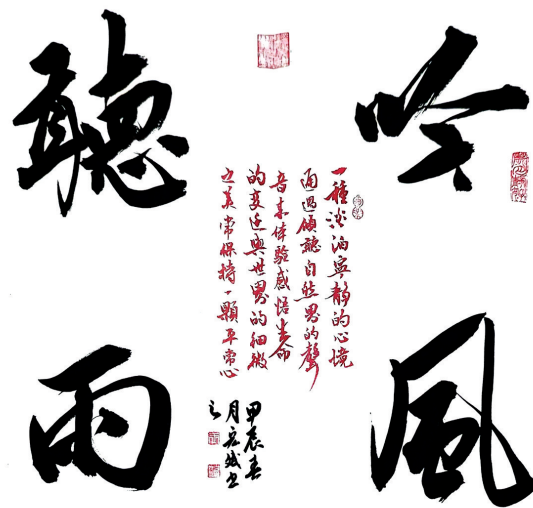 吟風
聽雨
一種淡泊寧靜的心境
通過傾聽自然界的聲
音来体驗感悟生命
的变迁與世界的細微
之美常保持一顆平常心
甲辰春
月书
之